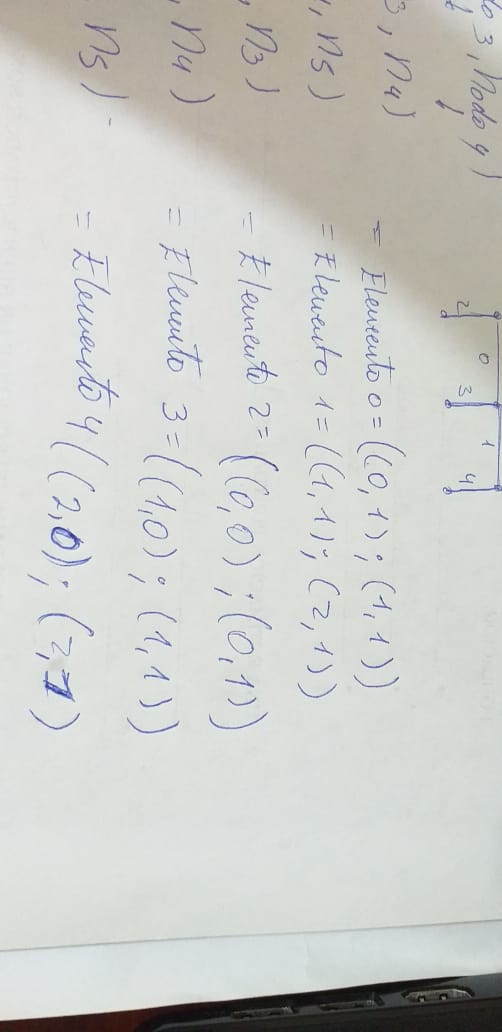 3, Nodo 4)
0 1
2 3 4
3, n4) = Elemento 0 = ((0,1) ; (1,1))
, n5) = Elemento 1 = ((1,1); (2,1))
, n3) = Elemento 2 = ((0,0) ; (0,1))
, n4) = Elemento 3 = ((1,0) ; (1,1))
n5) = Elemento 4 ((2,0); (2,1)